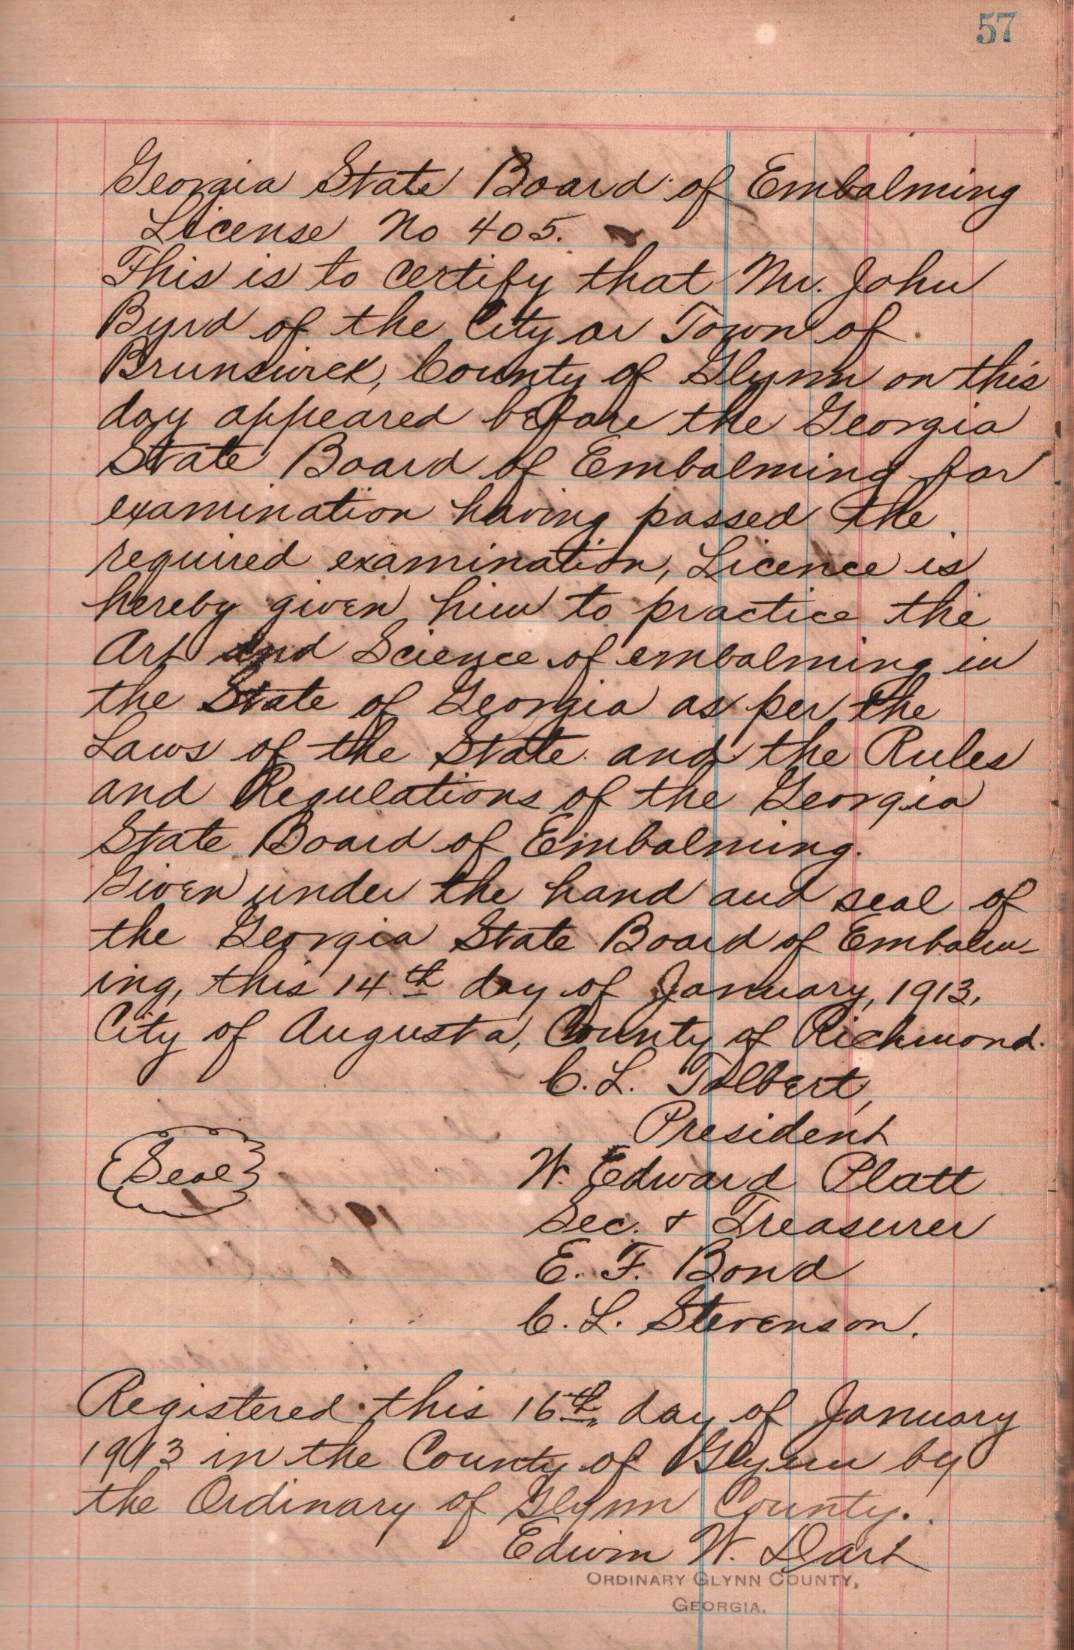 57
Georgia State Board of Embalming
License No 405.
This is to certify that Mr. John
Byrd of the City or Town of
Brunswick, County of Glynn on this
day appeared before the Georgia
State Board of Embalming for
examination having passed the
required examination, Licence is
hereby given him to practice the
Art and Science of embalming in
the State of Georgia as per the
Laws of the State and the Rules
and Regulations of the Georgia
State Board of Embalming.
Given under the hand and seal of
the Georgia State Board of Embalm-
ing, this 14th day of January, 1913.
City of Augusta, County of Richmond.
C. L. Tolbert,
President
Seal
W. Edward Platt
Sec. & Treasurer
E. F. Bond
C. L. Stevenson.
Registered this 16th day of January
1913 in the County of Glynn by
the Ordinary of Glynn County.
Edwin W. Dart
ORDINARY GLYNN COUNTY,
GEORGIA.